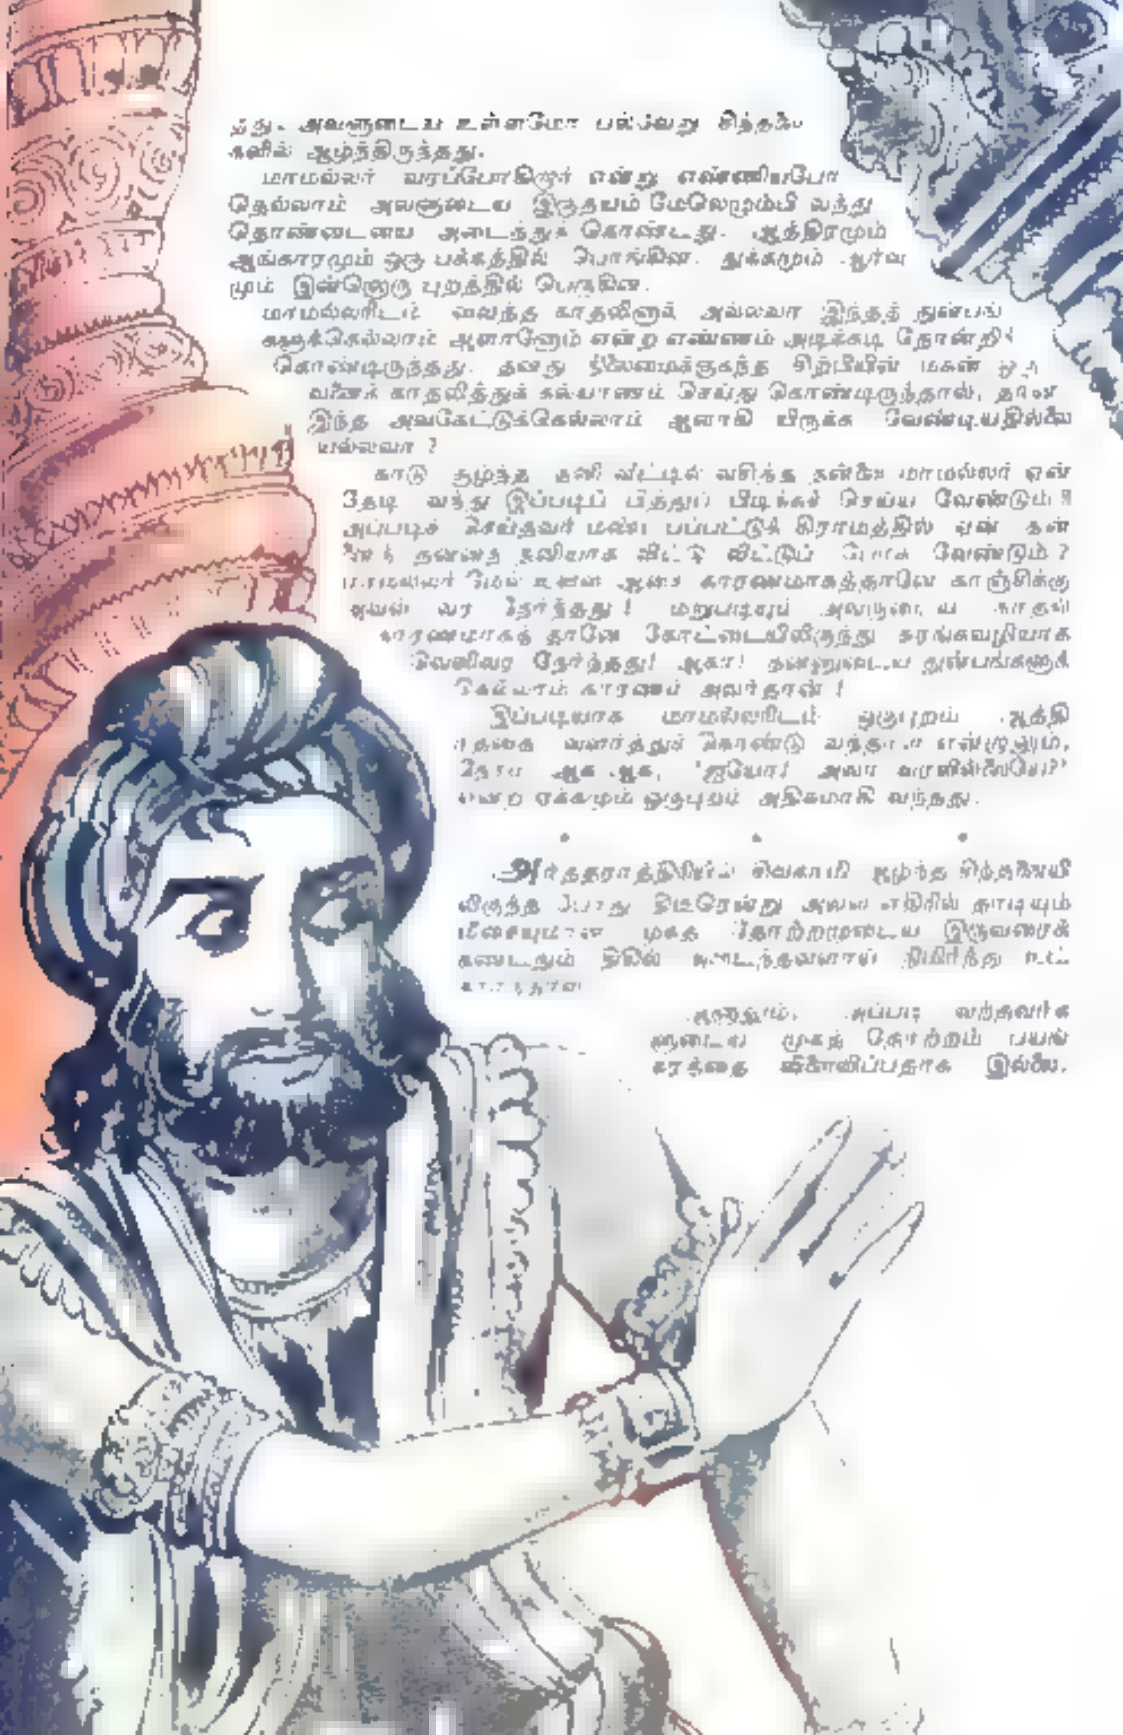 தது. அவளுடைய உள்ளமோ பல்வேறு சிந்தனை
களில் ஆழ்ந்திருந்தது.
மாமல்லர் வரப்போகிறார் என்று எண்ணியபோ
தெல்லாம் அவளுடைய இருதயம் மேலெழும்பி வந்து
தொண்டையை அடைத்துக் கொண்டது. ஆத்திரமும்
ஆங்காரமும் ஒரு பக்கத்தில் பொங்கின. துக்கமும் ஆர்வ
மும் இன்னொரு புறத்தில் பெருகின.
மாமல்லரிடம் வைத்த காதலினால் அல்லவா இந்தத் துன்பங்
களுக்கெல்லாம் ஆளானோம் என்ற எண்ணம் அடிக்கடி தோன்றிக்
கொண்டிருந்தது. தனது நிலைமைக்குகந்த சிற்பியின் மகன் ஒரு
வனைக் காதலித்துக் கல்யாணம் செய்து கொண்டிருந்தால், தான்
இந்த அவகேட்டுக்கெல்லாம் ஆளாகி யிருக்க வேண்டியதில்லை
யல்லவா ?
காடு சூழ்ந்த தனி வீட்டில் வசித்த தன்னை மாமல்லர் ஏன்
தேடி வந்து இப்படிப் பித்துப் பிடிக்கச் செய்ய வேண்டும் ?
அப்படிச் செய்தவர் மண்டபப்பட்டுக் கிராமத்தில் ஏன் தன்
தன்னைத் தனியாக விட்டு விட்டுப் போக வேண்டும் ?
மாமல்லர் மேல் உள்ள ஆசை காரணமாகத்தானே காஞ்சிக்கு
அவள் வர நேர்ந்தது ! மறுபடியும் அவருடைய காதல்
காரணமாகத் தானே கோட்டையிலிருந்து சுரங்கவழியாக
வெளிவர நேர்ந்தது! ஆகா! தன்னுடைய துன்பங்களுக்
கெல்லாம் காரணம் அவர்தான் !
இப்படியாக மாமல்லரிடம் ஒருபுறம் ஆத்தி
ரத்தை வளர்த்துக் கொண்டு வந்தாள் என்றாலும்,
நேரம் ஆக ஆக, 'ஐயோ! அவர் வரவில்லையே?'
என்ற ஏக்கமும் ஒருபுறம் அதிகமாகி வந்தது.
* * *
அர்த்தராத்திரியில் சிவகாமி ஆழ்ந்த சிந்தனையி
லிருந்த போது திடீரென்று அவள் எதிரில் தாடியும்
மீசையுமான முகத் தோற்றமுடைய இருவரைக்
கண்டதும் திகில் அடைந்தவளாய் நிமிர்ந்து உட்
கார்ந்தாள்
ஆனாலும், அப்படி வந்தவர்க
ளுடைய முகத் தோற்றம் பயங்
கரத்தை விளைவிப்பதாக இல்லை.